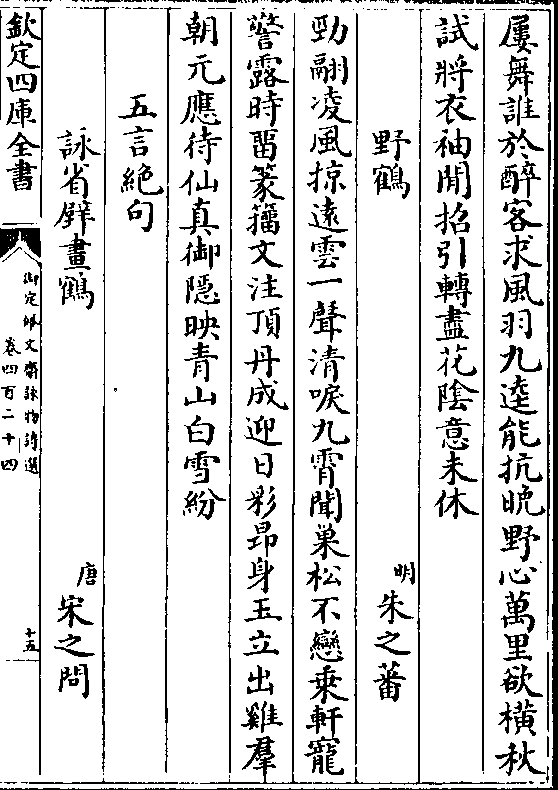 屢舞誰於醉客求風羽九逵能抗晩野心萬里欲横秋
試將衣袖閒招引轉盡花陰意未休
野鶴 明朱之蕃
勁翮凌風掠遠雲一聲清唳九霄聞巢松不戀乗軒寵
警露時留篆籀文注頂丹成迎日彩昂身玉立出雞羣
朝元應待仙真御隠映青山白雪紛
五言絶句
詠省壁畫鶴 唐宋之問
欽定四庫全書
御定佩文齋詠物詩選
卷四百二十四
十五